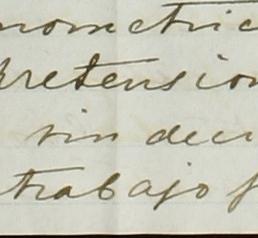 nometric
pretension
sin deci
trabajo f